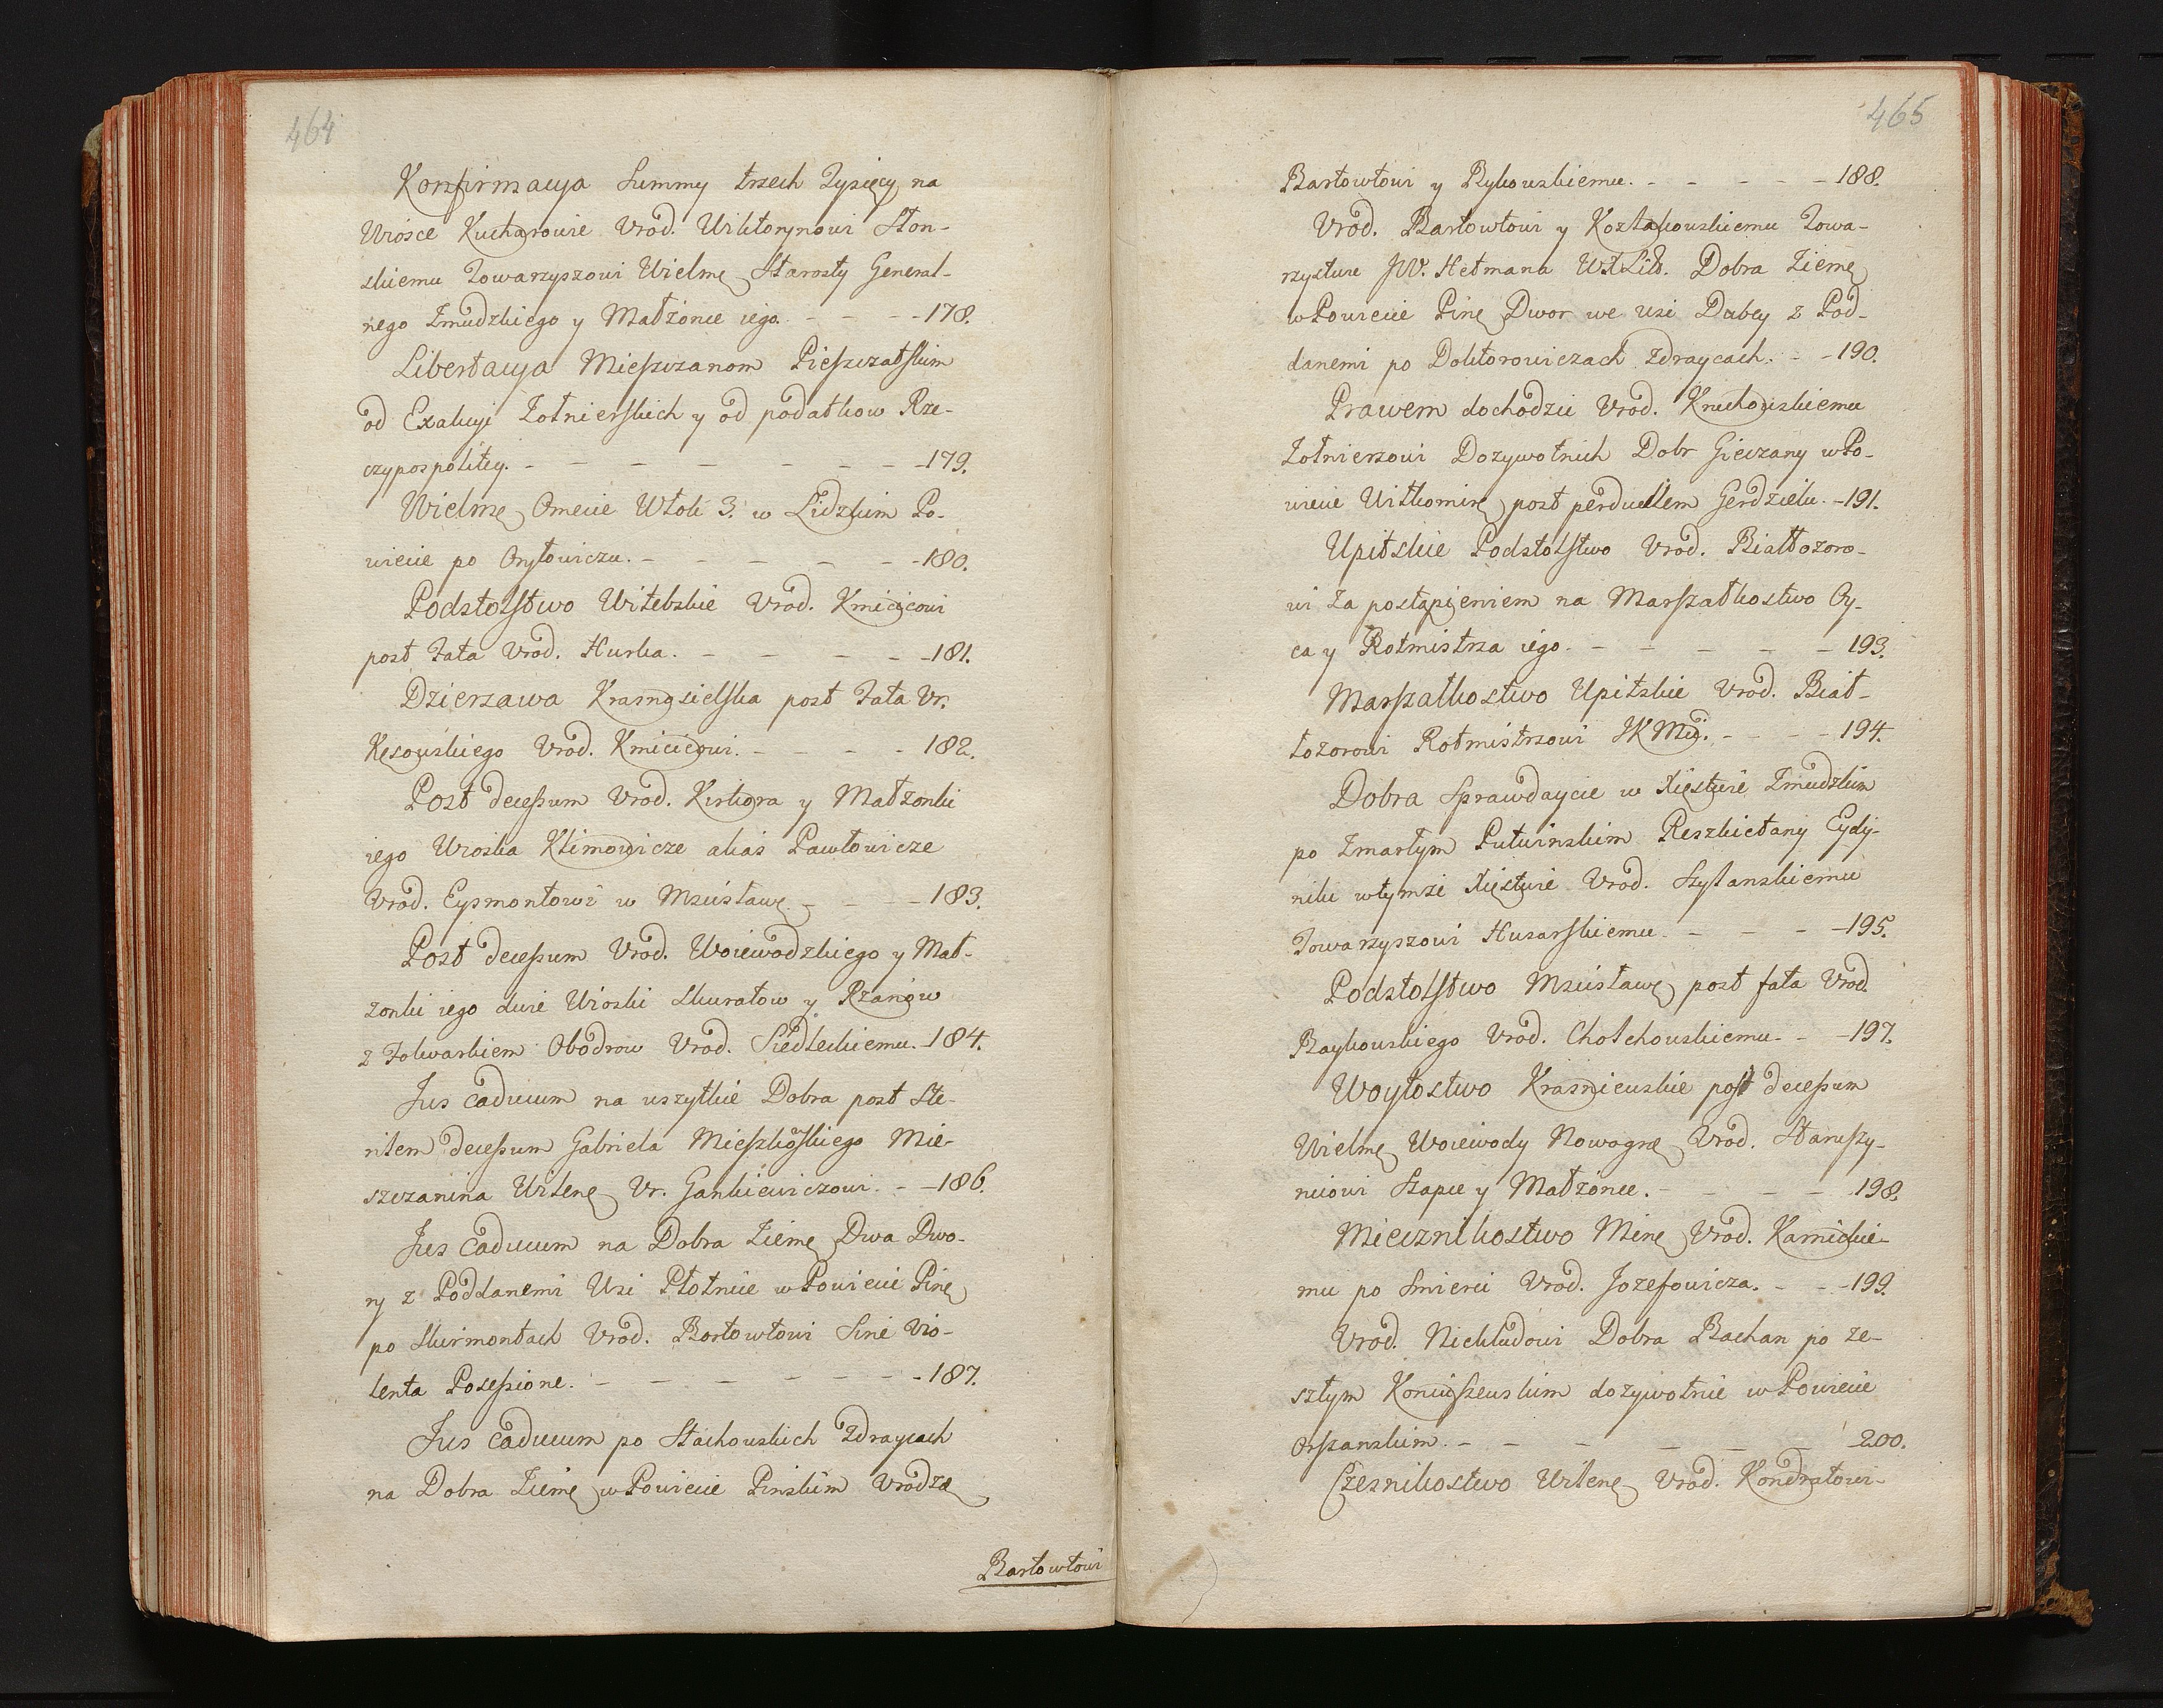 464
Konfirmacya Summy trzech Tysięcy na
Wiosce Kucharowie Vrod. Wiktorynowi Ston-
skiemu Towarzyszowi Wielmę Starosty General-
nego Zmudzkiego y Małżonce iego. - - - - 178.
Libertacya Mieszczanom Pieszczatskim
od Exakcyi Zołnierskich y od podatkow Rze-
czypospolitey. - - - - - - - - 179.
Wielmę Omecie Włok 3. w Lidzkim Po-
wiecie po Orytowiczu. - - - - - - 180.
Podstolstwo Witebskie Vrod. Kmicicowi
post Fata Vrod. Hurka. - - - - - 181.
Dzierzawa Krasnosielska post Fata Vr.
Kęsowskiego Vrod. Kmicicowi. - - - - 182.
Post decessum Vrod. Kirkora y Małzonki
iego Wioska Klimowicze alias Pawłowicze
Vrod. Eysmontowi w Mscisławę - - - 183.
Post decessum Vrod. Woiewodzkiego y Mał-
zonki iego dwie Wioski Skuratow y Rzanow
z Folwarkiem Obodrow Vrod. Siedleckiemu. - 184.
Jus caducum na wszytkie Dobra post Ste-
rilem decessum Gabriela Mieszkowskiego Mie-
szczanina Wilenę Vr. Gankiewiczowi. - - 186.
Jus caducum na Dobra Ziemę Dwa Dwo-
ry z Poddanemi Wsi Płotnice w Powiecie Pinę
po Skirmontach Vrod. Bartowtowi Sine Vio-
lenta Possessione. - - - - - - - 187.
Jus caducum po Stachowskich Zdraycach
na Dobra Ziemę w Powiecie Pinskim Vrodzę
Bartowtowi
465
Bartowtowi y Rykowskiemu. - - - - - 188.
Vrod. Bartowtowi y Kozłakowskiemu Towa-
rzystwu JW. Hetmana W.X.Lit. Dobra Ziemę
w Powiecie Pinę Dwor we Wsi Dubcy z Pod-
danemi po Doktorowiczach Zdraycach. - - 190.
Prawem dochodzic Vrod. Kruchowskiemu
Zołnierzowi Dozywotnich Dobr Gieczany w Po-
wiecie Wiłkomirę post perduellem Gerdzielu. - 191.
Upitskie Podstolstwo Vrod. Białłozoro-
wi za postąpieniem na Marszałkostwo Oy-
ca y Rotmistrza iego. - - - - - - 193.
Marszałkostwo Upitskie Vrod. Biał-
łozorowi Rotmistrzowi JKMci. - - - - 194.
Dobra Sprawdaycie w Xięstwie Zmudzkim
po Zmarłym Putwinskim Reszkietany Eydy-
niki w tymze Xięstwie Vrod. Szylanskiemu
Towarzyszowi Husarskiemu. - - - - 195.
Podstolstwo Mscisławę post fata Vrod.
Raykowskiego Vrod. Chotchowskiemu. - - 197.
Woytostwo Krasniewskie post decessum
Wielmę Woiewody Nowogrę Vrod. Staruszy-
nciowi Szapce y Małżonce. - - - - - 198.
Miecznikostwo Minę Vrod. Karnickie-
mu po Smierci Vrod. Jozefowicza. - - - 199.
Vrod. Nickludowi Dobra Bachan po ze-
szłym Koniuszewskim dozywotnie w Powiecie
Orszanskim. - - - - - - 200.
Czesnikostwo Wilenę Vrod. Kondratowi-